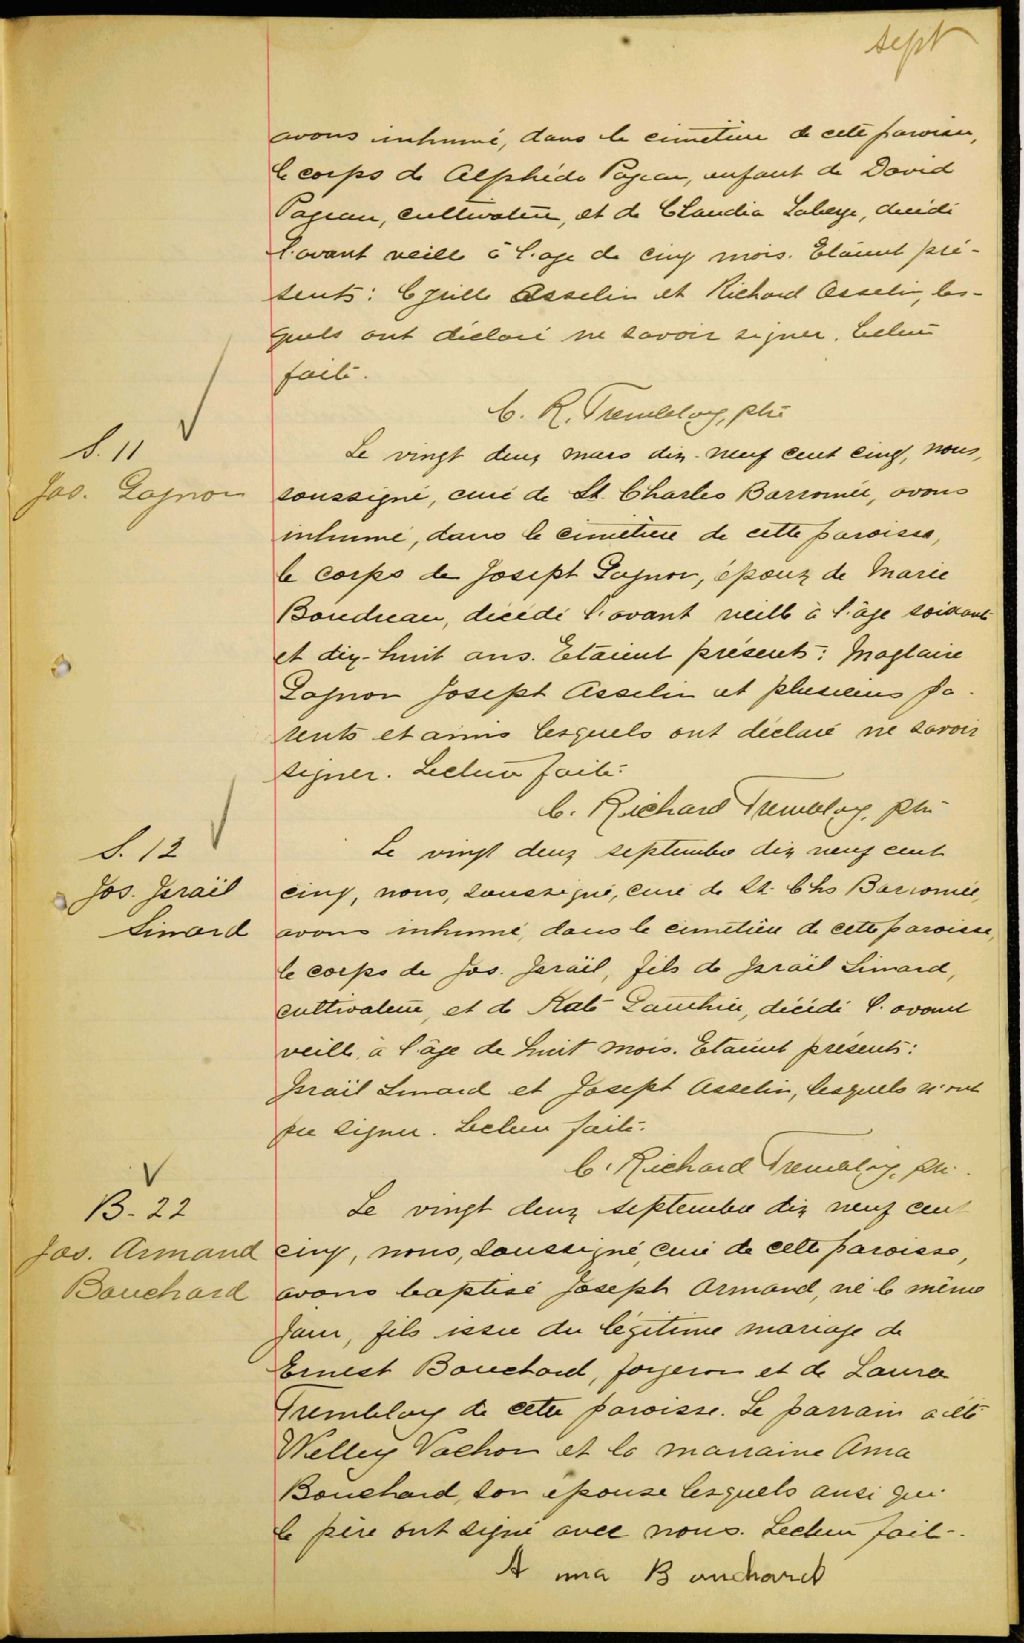 sept
avons inhumé, dans le cimetière de cette paroisse,
le corps de Alphéda Pageau, enfant de David
Pageau, cultivateur, et de Claudia Laberge, décédé
l'avant veille à l'age de cinq mois. Etaient pré-
sents: Cyrille Asselin et Richard Asselin, les-
quels ont déclaré ne savoir signer. Lecture
faite.
C. R. Tremblay, ptre
S. 11
Jos. Gagnon
Le vingt deux mars dix-neuf cent cinq, nous,
soussigné, curé de St. Charles Barromée, avons
inhumé, dans le cimetière de cette paroisse,
le corps de Joseph Gagnon, époux de Marie
Boudreau, décédé l'avant veille à l'âge soixante
et dix-huit ans. Etaient présents: Maglaire
Gagnon Joseph Asselin et plusieurs pa-
rents et amis lesquels ont déclaré ne savoir
signer. Lecture faite.
C. Richard Tremblay, ptre
S. 12
Jos. Israël
Simard
Le vingt deux septembre dix neuf cent
cinq, nous, soussigné, curé de St. Chs Barromée,
avons inhumé, dans le cimetière de cette paroisse,
le corps de Jos. Israël, fils de Israël Simard,
cultivateur, et de Kate Gauthier, décédé l'avant
veille, à l'âge de huit mois. Etaient présents:
Israïl Simard et Joseph Asselin, lesquels n'ont
pu signer. Lecture faite.
C. Richard Tremblay, ptre.
B. 22
Jos. Armand
Bouchard
Le vingt deux septembre dix neuf cent
cinq, nous, soussigné, curé de cette paroisse,
avons baptisé Joseph Armand, né le même
jour, fils issu du légitime mariage de
Ernest Bouchard, forgeron et de Laura
Tremblay de cette paroisse. Le parrain a été
Welley Vachon et la marraine Ama
Bouchard, son épouse lesquels ansi que
le père ont signé avec nous. Lecture faite.
Anna Bouchard